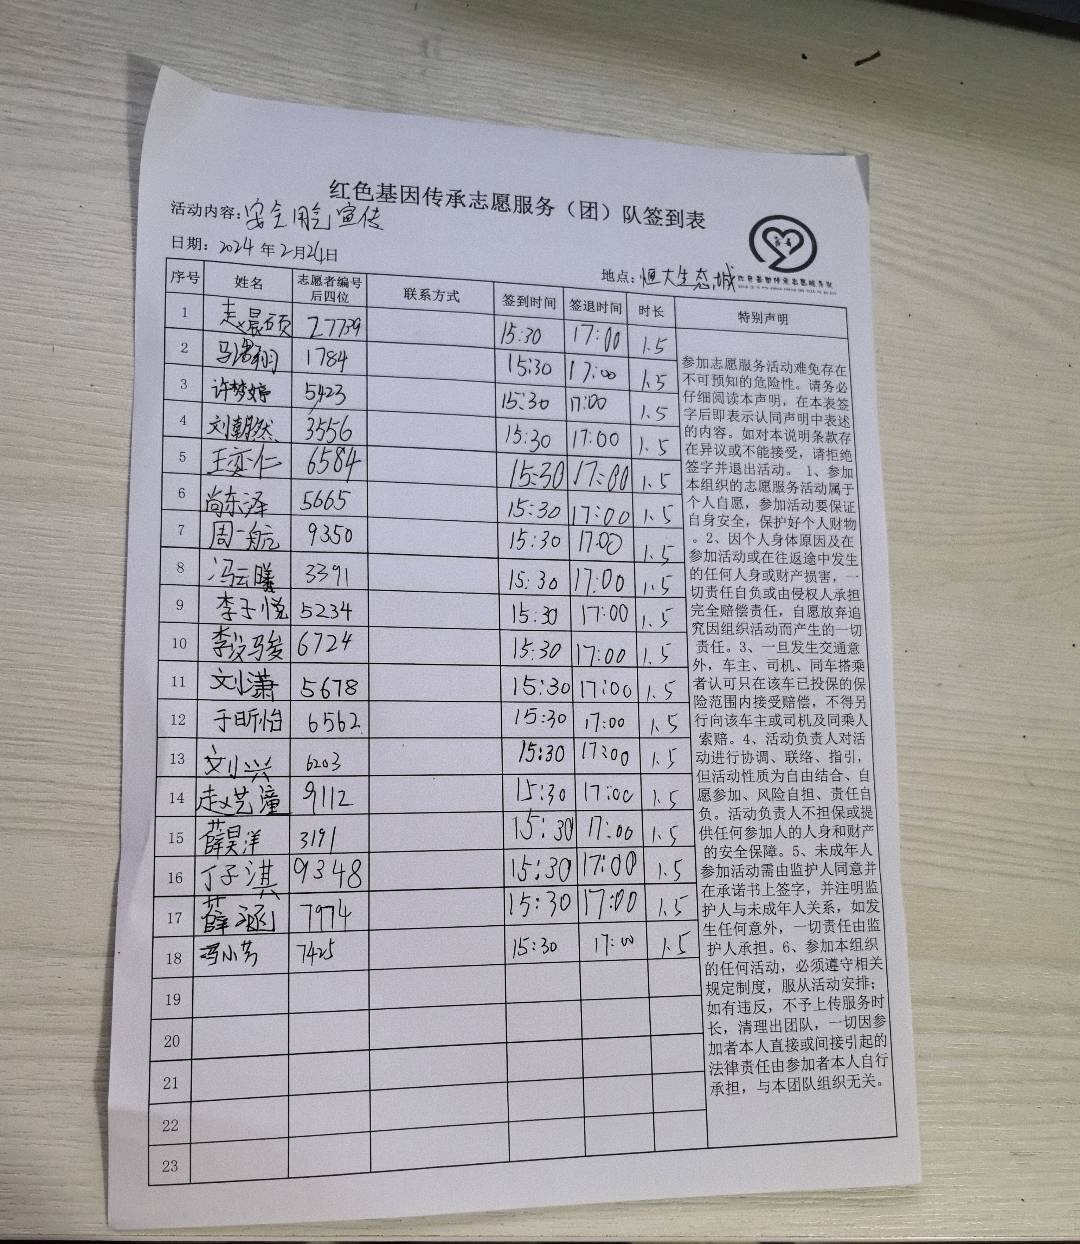 红色基因传承志愿服务（团）队签到表
活动内容：安全用气宣传
日期：2024年2月24日
地点：恒大生态城
序号 姓名 志愿者编号后四位 联系方式 签到时间 签退时间 时长 特别声明
1 赵晨硕 27739 15:30 17:00 1.5
2 1784 15:30 17:00 1.5
3 许梦婷 5423 15:30 17:00 1.5
4 刘朝然 3556 15:30 17:00 1.5
5 王奕仁 6584 15:30 17:00 1.5
6 尚东泽 5665 15:30 17:00 1.5
7 周一航 9350 15:30 17:00 1.5
8 冯云曦 3391 15:30 17:00 1.5
9 李子悦 5234 15:30 17:00 1.5
10 6724 15:30 17:00 1.5
11 刘潇 5678 15:30 17:00 1.5
12 于昕怡 6562 15:30 17:00 1.5
13 刘兴 6203 15:30 17:00 1.5
14 赵艺潼 9112 15:30 17:00 1.5
15 薛昊洋 3191 15:30 17:00 1.5
16 丁子淇 9348 15:30 17:00 1.5
17 薛涵 7974 15:30 17:00 1.5
18 冯小芳 7425 15:30 17:00 1.5
19
20
21
22
23
参加志愿服务活动难免存在
不可预知的危险性。请务必
仔细阅读本声明，在本表签
字后即表示认同声明中表述
的内容。如对本说明条款存
在异议或不能接受，请拒绝
签字并退出活动。1、参加
本组织的志愿服务活动属于
个人自愿，参加活动要保证
自身安全，保护好个人财物
。2、因个人身体原因及在
参加活动或在往返途中发生
的任何人身或财产损害，一
切责任自负或由侵权人承担
完全赔偿责任，自愿放弃追
究因组织活动而产生的一切
责任。3、一旦发生交通意
外，车主、司机、同车搭乘
者认可只在该车已投保的保
险范围内接受赔偿，不得另
行向该车主或司机及同乘人
索赔。4、活动负责人对活
动进行协调、联络、指引，
但活动性质为自由结合、自
愿参加、风险自担、责任自
负。活动负责人不担保或提
供任何参加人的人身和财产
的安全保障。5、未成年人
参加活动需由监护人同意并
在承诺书上签字，并注明监
护人与未成年人关系，如发
生任何意外，一切责任由监
护人承担。6、参加本组织
的任何活动，必须遵守相关
规定制度，服从活动安排；
如有违反，不予上传服务时
长，清理出团队，一切因参
加者本人直接或间接引起的
法律责任由参加者本人自行
承担，与本团队组织无关。